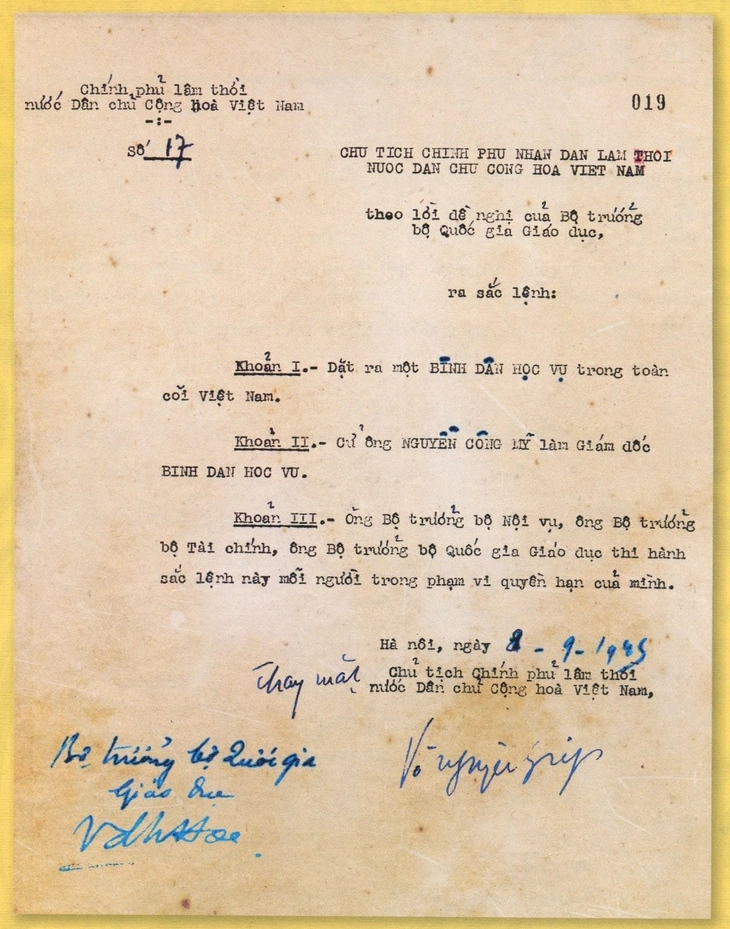 Chính phủ lâm thời
nước Dân chủ Cộng hoà Việt Nam
-:-
Số 17
019
CHU TICH CHINH PHU NHAN DAN LAM THOI
NUOC DAN CHU CONG HOA VIET NAM
theo lời đề nghị của Bộ trưởng
bộ Quốc gia Giáo dục,
ra sắc lệnh:
Khoản I.- Dặt ra một BÌNH DÂN HỌC VỤ trong toàn
cõi Việt Nam.
Khoản II.- Cử ông NGUYỄN CÔNG MỸ làm Giám đốc
BINH DAN HOC VU.
Khoản III.- Ông Bộ trưởng bộ Nội vụ, ông Bộ trưởng
bộ Tài chính, ông Bộ trưởng bộ Quốc gia Giáo dục thi hành
sắc lệnh này mỗi người trong phạm vi quyền hạn của mình.
Hà nôi, ngày 8 - 9 - 1945
Thay mặt Chủ tịch Chính phủ lâm thời
nước Dân chủ Cộng hoà Việt Nam,
Bộ trưởng bộ Quốc gia
Giáo dục
Võ Nguyên Giáp
VdhHoe